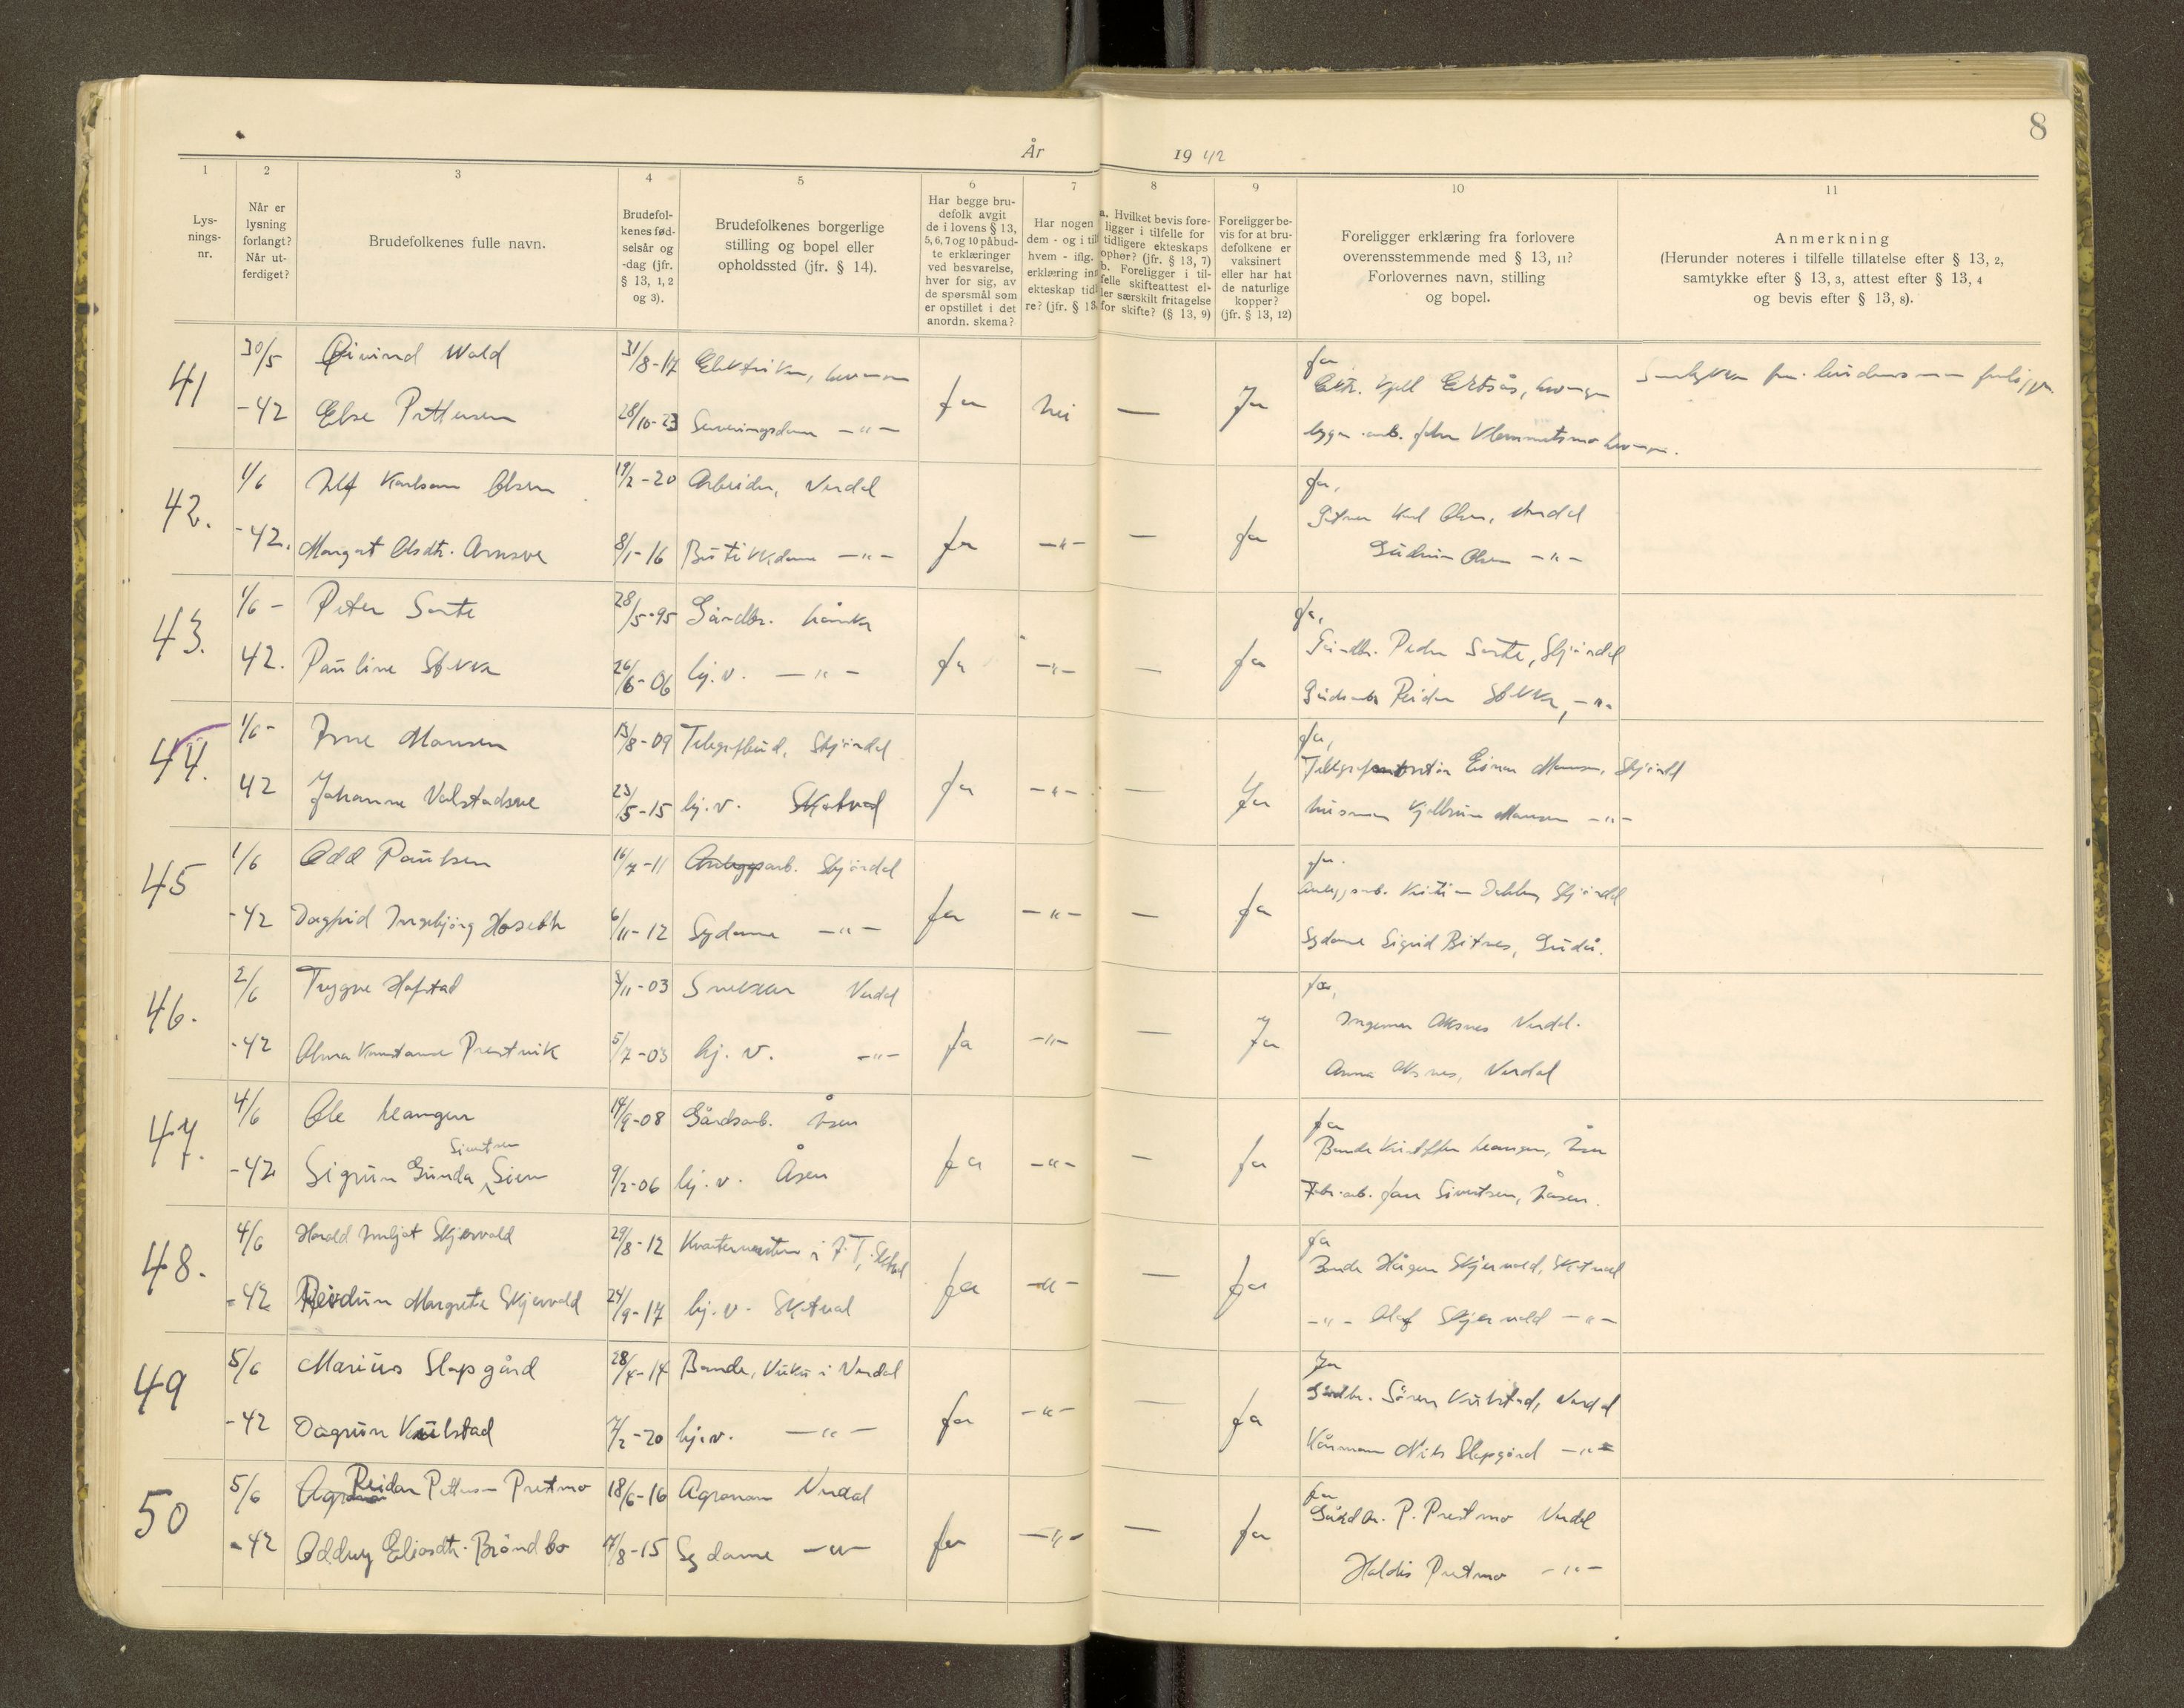 8
År 1942
1 2 3 4 5 6 7 8 9 10 11
Lys-
nings-
nr.
Når er
lysning
forlangt?
Når ut-
ferdiget?
Brudefolkenes fulle navn.
Brudefol-
kenes fød-
selsår og
-dag (jfr.
§ 13, 1, 2
og 3).
Brudefolkenes borgerlige
stilling og bopel eller
opholdssted (jfr. § 14).
Har begge bru-
defolk avgit
de i lovens § 13,
5, 6, 7 og 10 påbud-
te erklæringer
ved besvarelse,
hver for sig, av
de spørsmål som
er opstillet i det
anordn. skema?
Har nogen
dem - og i til
hvem - iflg.
erklæring inn
ekteskap tid
re? (jfr. § 13
a. Hvilket bevis fore-
ligger i tilfelle for
tidligere ekteskaps
opher? (jfr. § 13, 7)
b. Foreligger i til-
felle skifteattest el-
ler særskilt fritagelse
for skifte? (§ 13, 9)
Foreligger be-
vis for at bru-
defolkene er
vaksinert
eller har hat
de naturlige
kopper?
(jfr. § 13, 12)
Foreligger erklæring fra forlovere
overensstemmende med § 13, 11?
Forlovernes navn, stilling
og bopel.
Anmerkning
(Herunder noteres i tilfelle tillatelse efter § 13, 2,
samtykke efter § 13, 3, attest efter § 13, 4
og bevis efter § 13, 8).
41 30/5 Øivind Wold 31/8-17 Elektriker, Ja
-42 Else Pettersen 28/10-23 Serveringsdame -"- Ja Nei — Ja
42. 1/6 Karlsen Olsen 19/2-20 Arbeider, Verdal Ja,
Karl Olsen, Verdal
-42. Margot Olsdtr. 8/1-16 Butikkdame -"- Ja -"- — Ja Gudrun Olsen -"-
43. 1/6- Peter Sarte 28/5-95 Gårdbr. Ja,
Gårdbr. Peder Sarte, Stjørdal
42. Pauline Stokke 26/6-06 hj.v. -"- Ja -"- — Ja Reidar Stokke, -"-
44. 1/6- Arne Monsen 13/8-09 Telegrafbud, Stjørdal Ja,
Einar Monsen, Stjørdal
42 Johanne 23/5-15 hj.v. Skatval Ja -"- — Ja Monsen -"-
45 1/6 Odd Paulsen 16/7-11 Anleggsarb. Stjørdal Ja.
Anleggsarb. Kristian Stjørdal
-42 Dagfrid Ingebjørg Hoseth 6/11-12 Sydame -"- Ja -"- — Ja Sydame Sigrid Bitnes, Gudå.
46. 2/6 Trygve Hofstad /11-03 Snekker Verdal Ja,
Ingemar Aksnes Verdal.
-42 Alma Konstanse Præstvik 5/7-03 hj.v. -"- Ja -"- — Ja Anna Aksnes, Verdal
47. 4/6 Ole Leangen 14/9-08 Gårdsarb. Åsen Ja
Bonde Kristoffer Leangen, Åsen
Sivertsen
-42 Sigrun Gunda Sien 9/2-06 hj.v. Åsen Ja -"- — Ja Fabr.arb. Jan Sivertsen, Åsen.
48. 4/6 Harald Skjervold 29/8-12 Kvartermester i Ja
Bonde Håigen Skjervold, Skatval
-42 Reidun Margrete Skjervold 24/9-17 hj.v. Skatval Ja -"- — Ja -"- Olaf Skjervold -"-
49 5/6 Marius Slapgård 28/4-14 Bonde, Vuku i Verdal Ja
Gårdbr. Sören Kulstad, Verdal
-42 Dagrun Kulstad 7/2-20 hj.v. -"- Ja -"- — Ja Kårmann Nils Slapgård -"-
50 5/6 Reidar Petterson Prestmo 18/6-16 Agronom Verdal Ja
Gårdbr. P. Prestmo Verdal
-42 Oddny Eliasdtr. Bröndbo 17/8-15 Sydame -"- Ja -"- — Ja Haldis Prestmo -"-